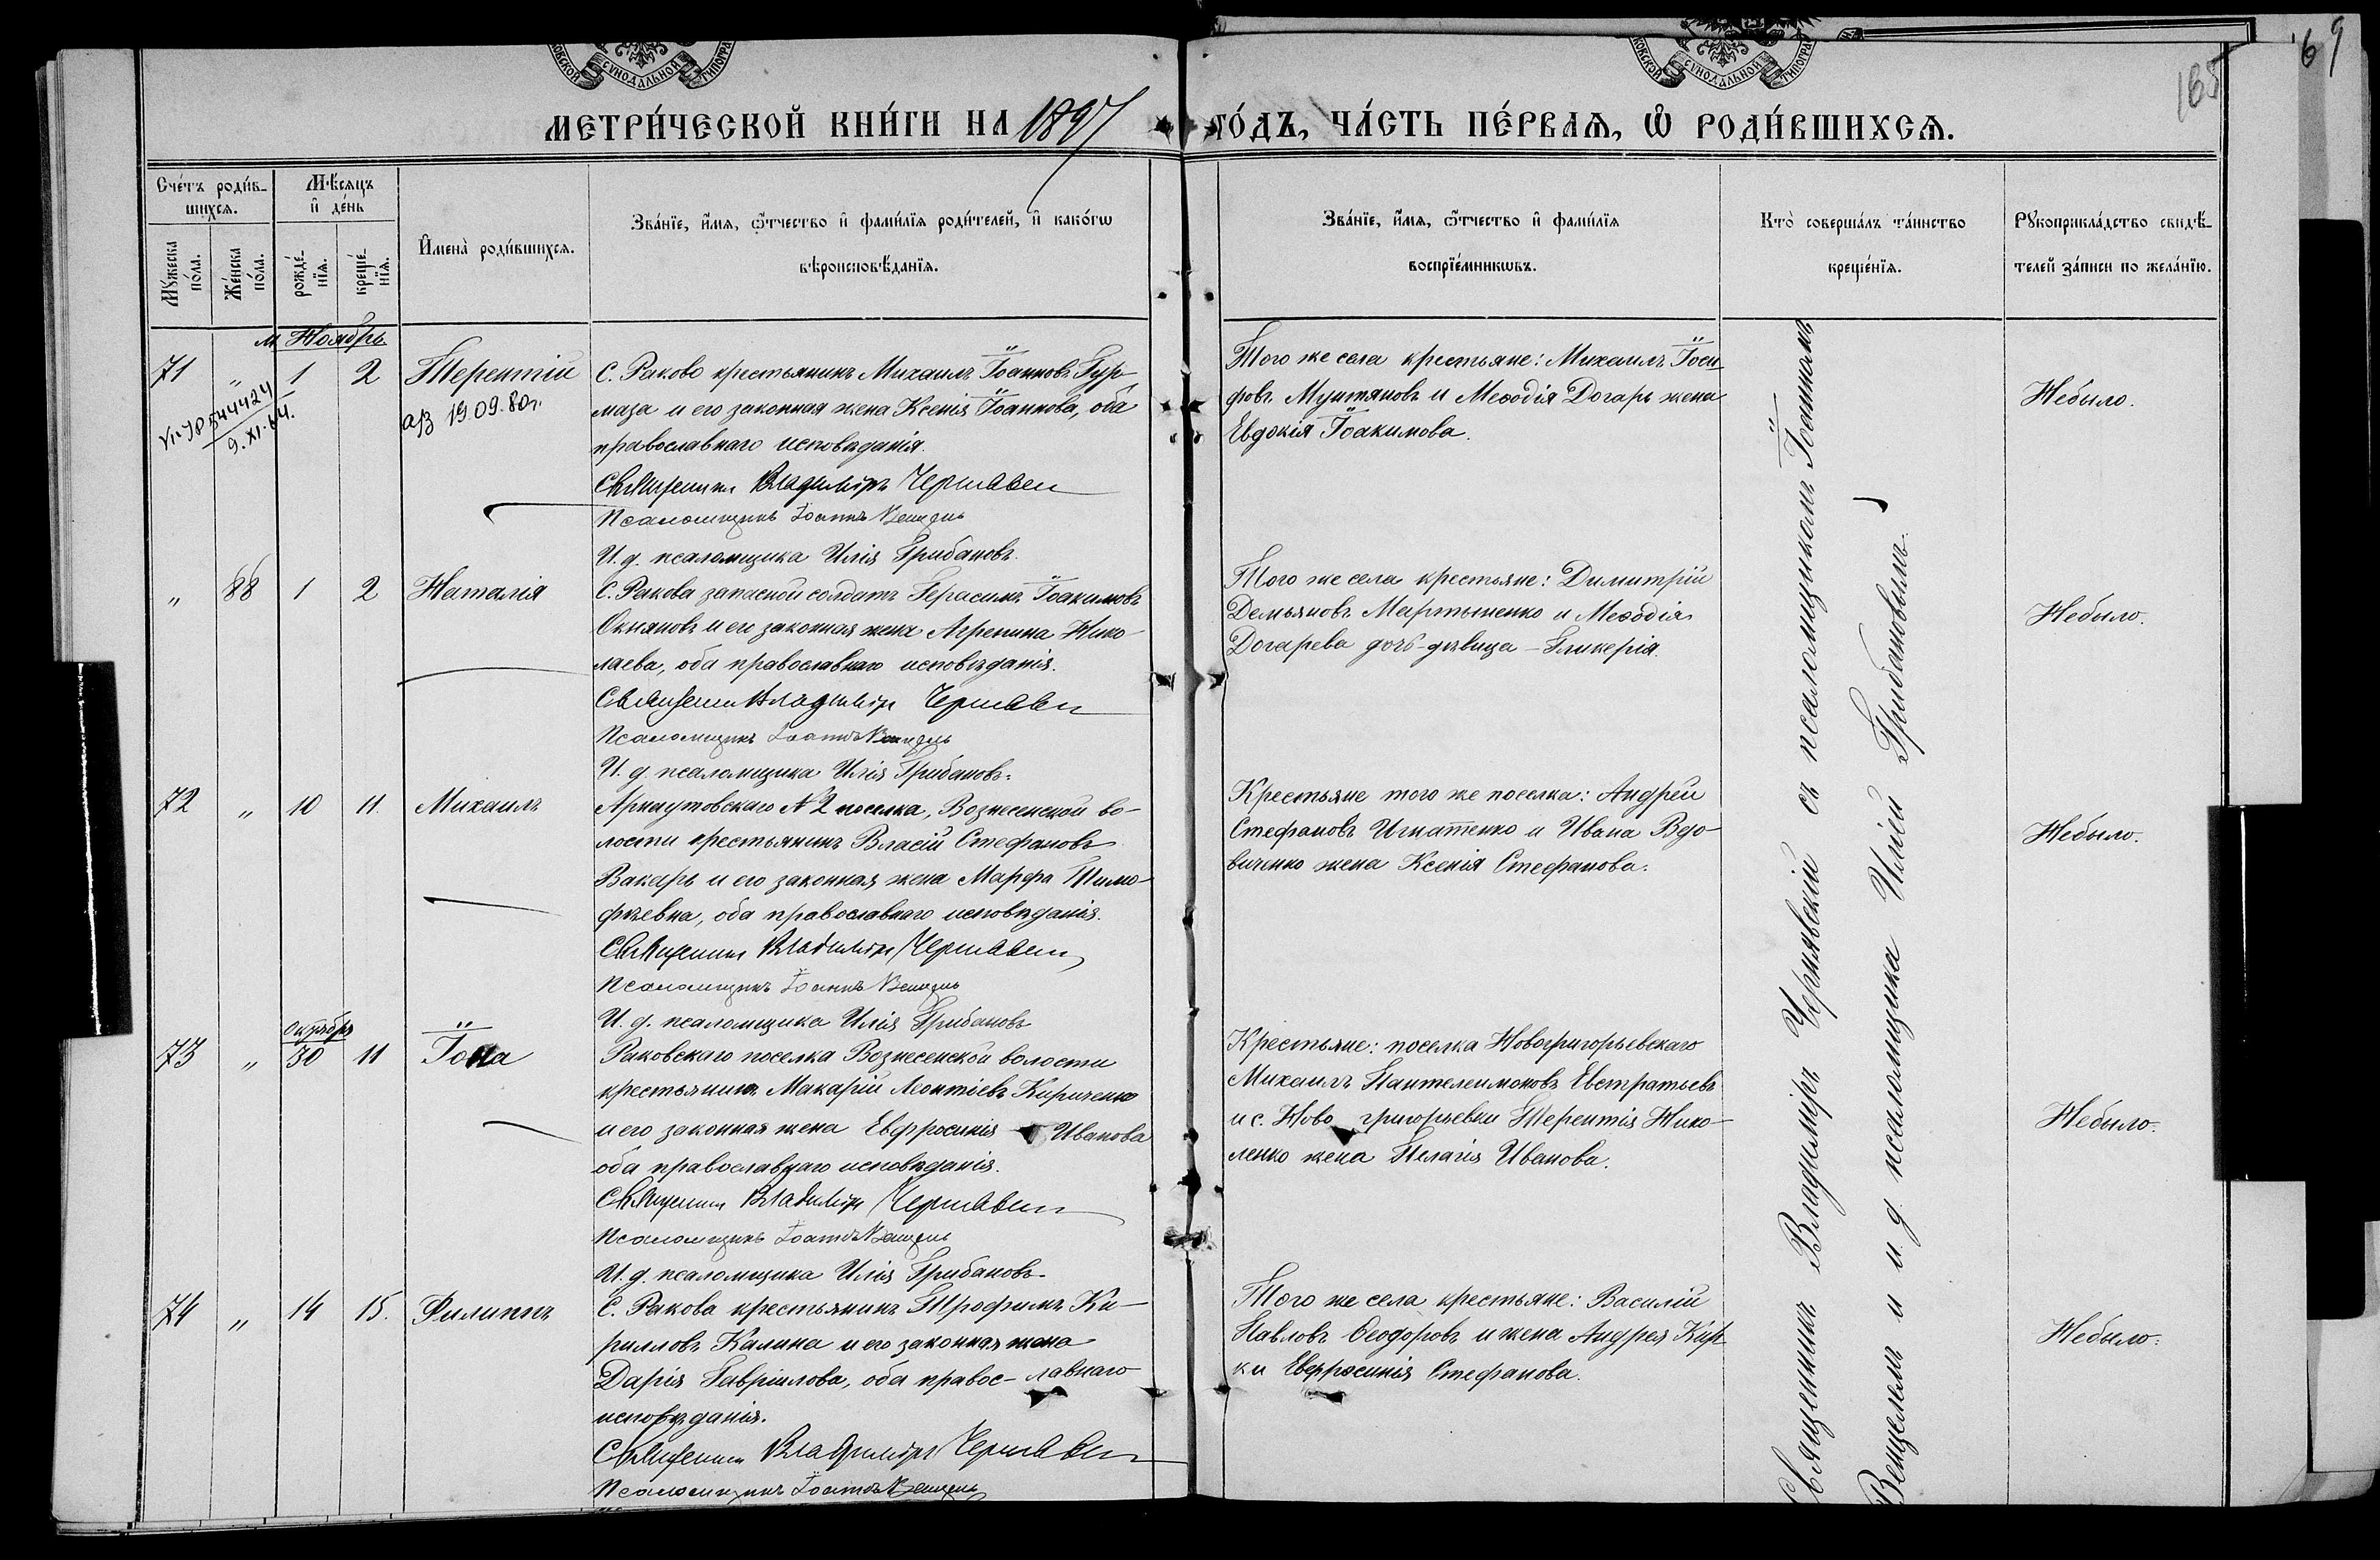 69
165
СѴНОДАЛЬНОЙ
ТИПОГРА
МЕТРИ́ЧЕСКОЙ КНИ́ГИ НА 1897
КОВСКОЙ
СѴНОДАЛЬНОЙ
ТИПОГРА
ГО́ДЪ, ЧА́СТЬ ПЕ́РВАѦ, Ѿ РОДИ́ВШИХСѦ.
Сче́тъ роди́в-
шихсѧ.
Мꙋ́жеска
по́ла.
Же́нска
по́ла.
Мѣ́сѧцъ
и҆ де́нь
рожде́-
нїѧ.
креще́-
нїѧ.
И҆мена̀ роди́вшихсѧ.
Зва́нїе, и҆́мѧ, ѻ҆́тчество и҆ фами́лїѧ роди́телей, и҆ како́гѡ
вѣроисповѣ́данїѧ.
Зва́нїе, и҆́мѧ, ѻ҆́тчество и҆ фами́лїѧ
воспрїе́мникѡвъ.
Кто̀ соверша́лъ та́инство
креще́нїѧ.
Рꙋкоприкла́дство свидѣ́-
телей за́писи по жела́нїю.
м Ноябрь
71 " 1 2 Терентій
9.XI.64.
19.09.80г.
С. Раково крестьянинъ Михаилъ Іоанновъ Гур-
маза и его законная жена Ксенія Іоаннова, оба
православнаго исповѣданія.
Священникъ Владиміръ Чернявскі
Псаломщикъ Іоаннъ Венцель
И. д. псаломщика Илія Грибановъ.
Того же села крестьяне: Михаилъ Іоси-
фовъ Мунтяновъ и Меѳодія Догарь жена
Евдокія Іоакимова.
Небыло.
" 88 1 2 Наталія
С. Ракова запасной солдатъ Герасимъ Іоакимовъ
Окняновъ и его законная жена Агрепина Нико-
лаева, оба православнаго исповѣданія.
Священни Владиміръ Чернявскі
Псаломщикъ Іоаннъ Венцель
И. д. псаломщика Илія Грибановъ.
Того же села крестьяне: Димитрій
Демьяновъ Мартыненко и Меѳодія
Догарева дочь-дѣвица - Гликерія.
Небыло.
72 " 10 11. Михаилъ
Арнаутовскаго №2 поселка, Вознесенской во-
лости крестьянинъ Власій Стефановъ
Вакарь и его законная жена Марфа Тимо-
фѣевна, оба православнаго исповѣданія.
Священникъ Владиміръ Чернявскі
Псаломщикъ Іоаннъ Венцель
И. д. псаломщика Илія Грибановъ
Крестьяне того же поселка: Андрей
Стефановъ Игнатенко и Ивана Вдо-
виченко жена Ксенія Стефанова.
Небыло.
октября
73 " 30 11 Іона
Раковскаго поселка Вознесенской волости
крестьянинъ Макарій Леонтіевъ Кириченко
и его законная жена Евфросинія Иванова
оба православнаго исповѣданія.
Священникъ Владиміръ Чернявскі
Псаломщикъ Іоаннъ Венцель
И. д. псаломщика Илія Грибановъ.
Крестьяне: поселка Новогригорьевскаго
Михаилъ Пантелеимоновъ Евстратьевъ
и с. Ново григорьевки Терентія Нико-
ленко жена Пелагія Иванова.
Небыло.
74 " 14 15. Филиппъ
С. Ракова крестьянинъ Трофимъ Ки-
рилловъ Калина и его законная жена
Дарія Гавріилова, оба правос- лавнаго
исповѣданія.
Священникъ Владиміръ Чернявскі
Псаломщикъ Іоаннъ Венцель
Того же села крестьяне: Василій
Павловъ Ѳеодоровъ и жена Андрея Кир-
ки Евфросинія Стефанова.
Небыло.
Священникъ Владиміръ Чернявскій съ псаломщикомъ Іоанномъ
Венцелемъ и и. д. псаломщика Иліей Грибановымъ.